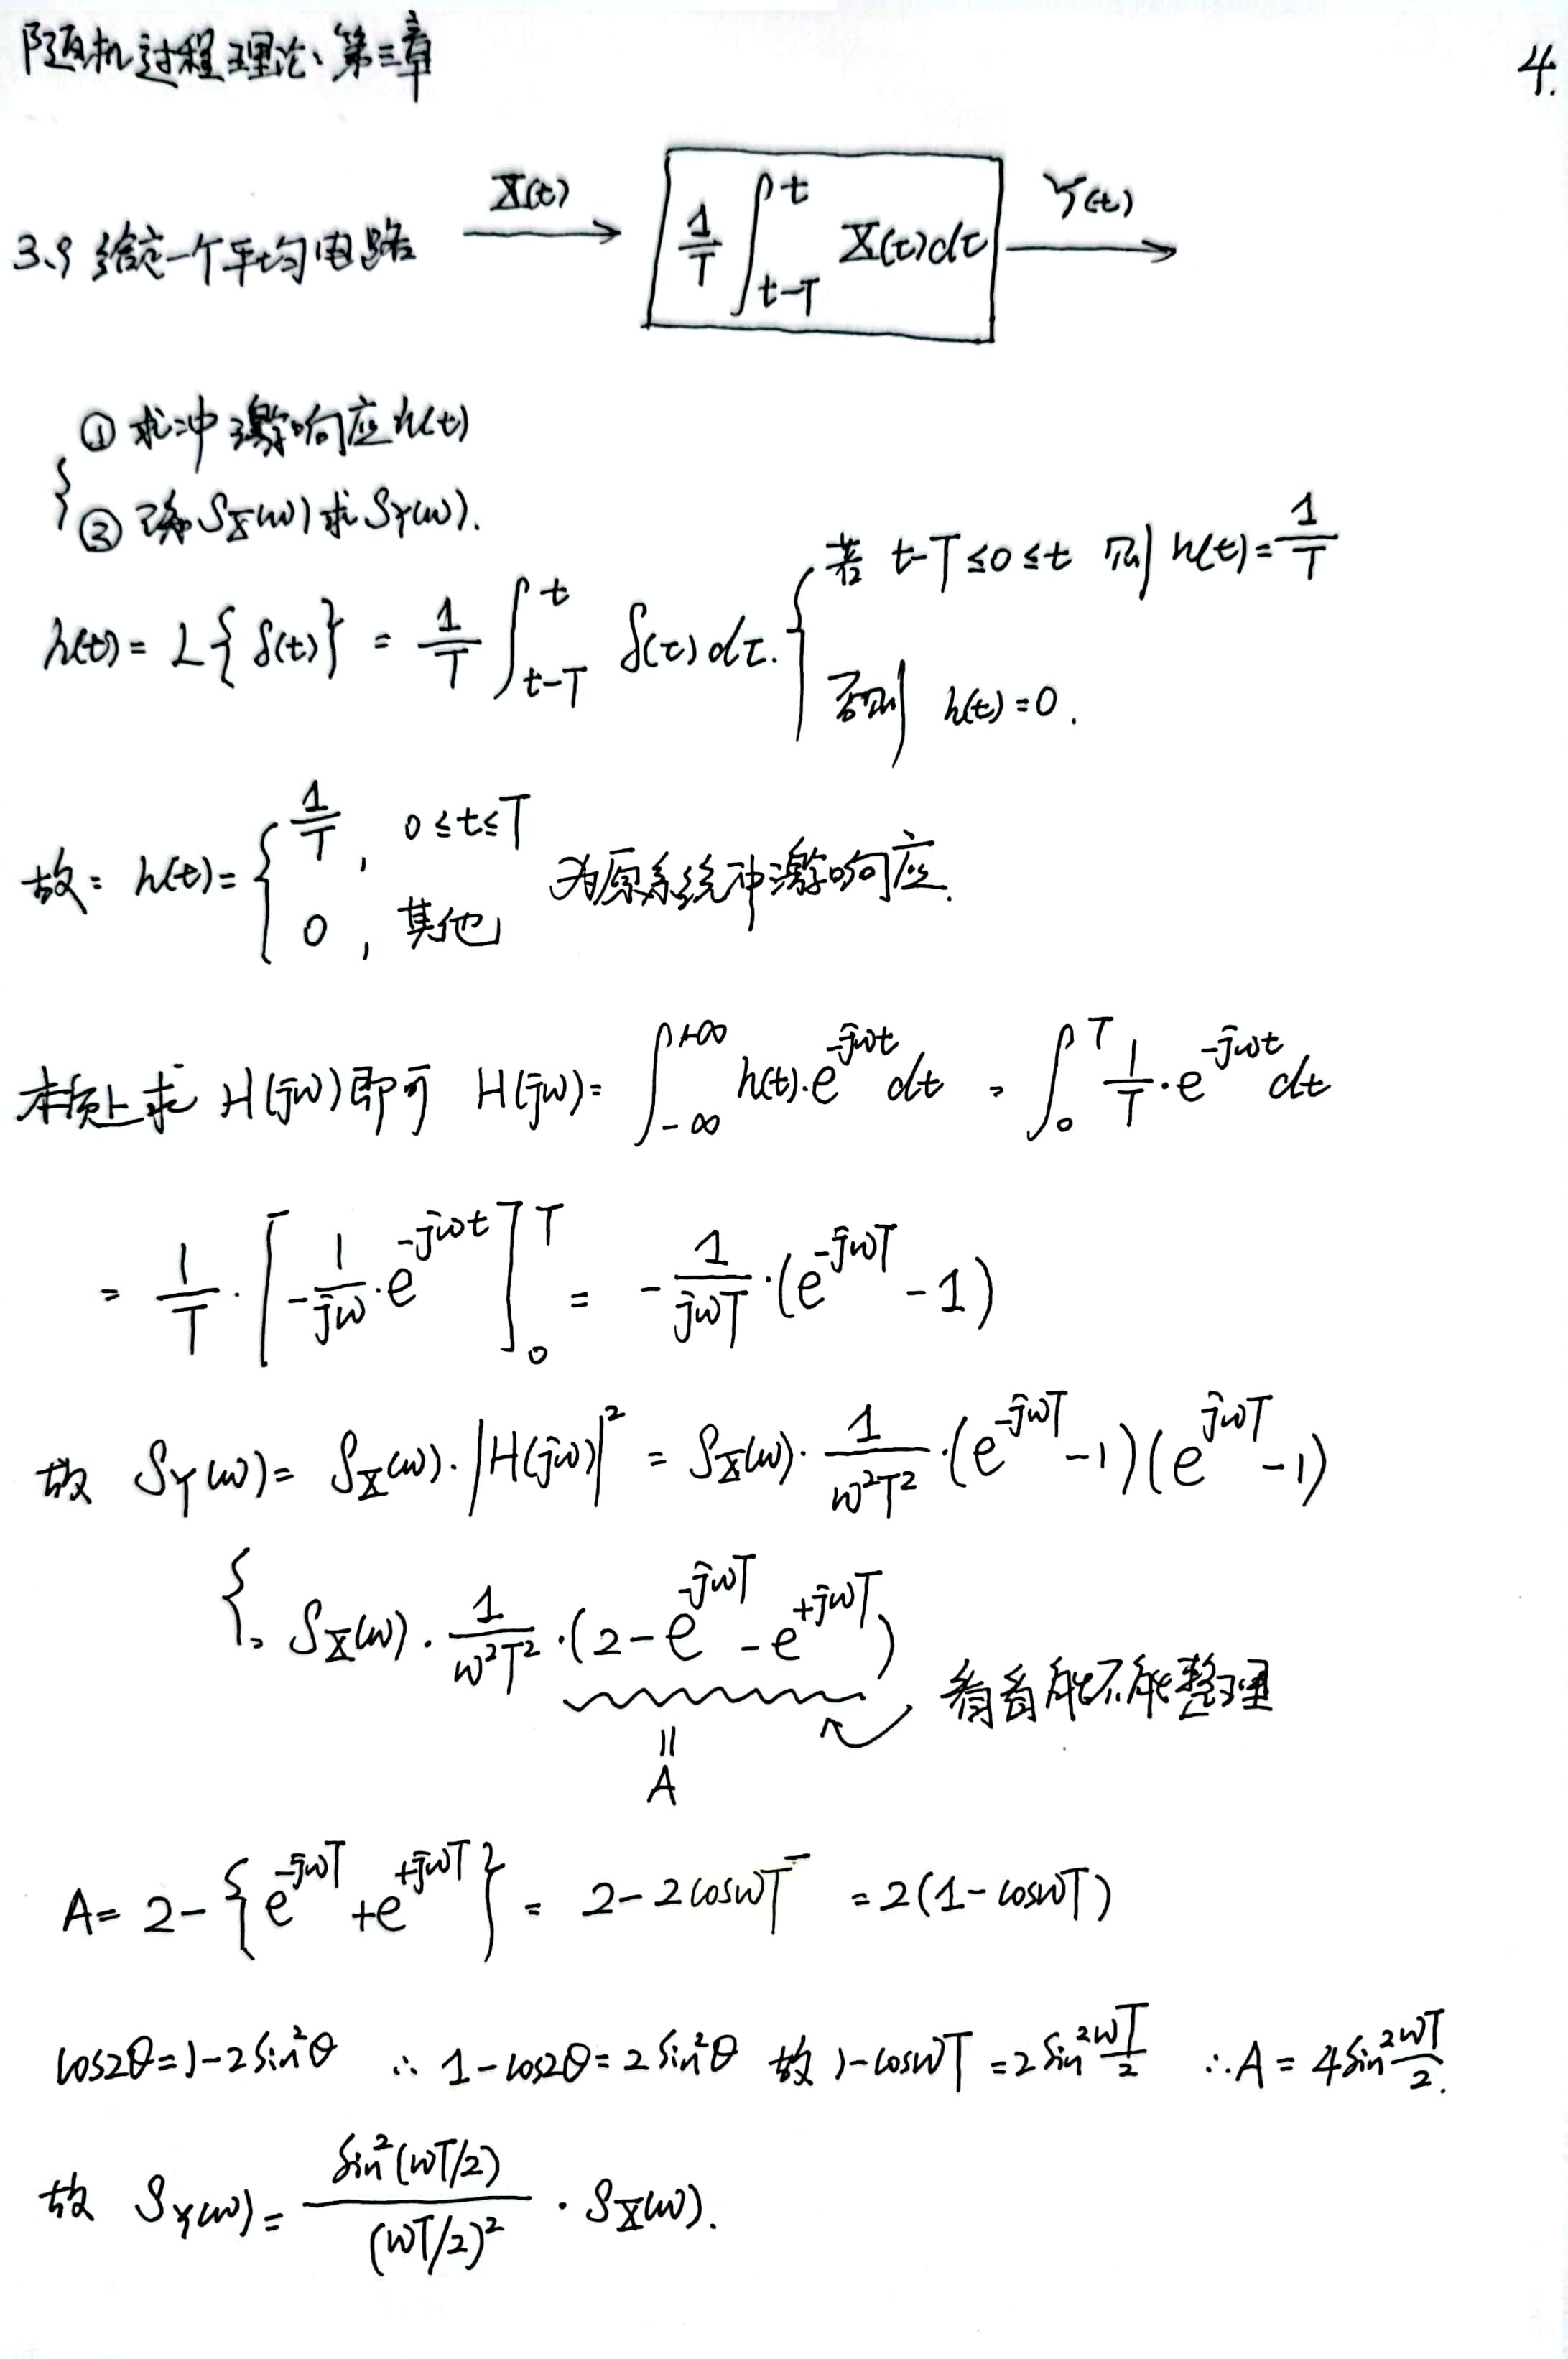 随机过程理论：第三章 4.
3.9 给定一个平均电路 X(t) → 1/T ∫_{t-T}^{t} X(τ)dτ → Y(t)
① 求冲激响应h(t)
② 已知 S_X(ω) 求 S_Y(ω).
h(t) = L{δ(t)} = 1/T ∫_{t-T}^{t} δ(τ)dτ. { 若 t-T≤0≤t 则 h(t)=1/T
否则 h(t)=0.
故：h(t)= { 1/T , 0≤t≤T
0 , 其他 为原系统冲激响应.
本质上求 H(jω) 即可 H(jω)= ∫_{-∞}^{+∞} h(t)·e^{-jωt} dt = ∫_{0}^{T} 1/T · e^{-jωt} dt
= 1/T · [ -1/jω · e^{-jωt} ]_{0}^{T} = - 1/jωT · (e^{-jωT} - 1)
故 S_Y(ω) = S_X(ω) · |H(jω)|² = S_X(ω) · 1/ω²T² · (e^{-jωT} - 1)(e^{jωT} - 1)
{ = S_X(ω) · 1/ω²T² · (2 - e^{-jωT} - e^{+jωT})
看看能不能整理
= A
A = 2 - {e^{-jωT} + e^{+jωT}} = 2 - 2cosωT = 2(1 - cosωT)
cos2θ = 1 - 2sin²θ ∴ 1 - cos2θ = 2sin²θ 故 1 - cosωT = 2sin² ωT/2 ∴ A = 4sin² ωT/2.
故 S_Y(ω) = sin²(ωT/2) / (ωT/2)² · S_X(ω).